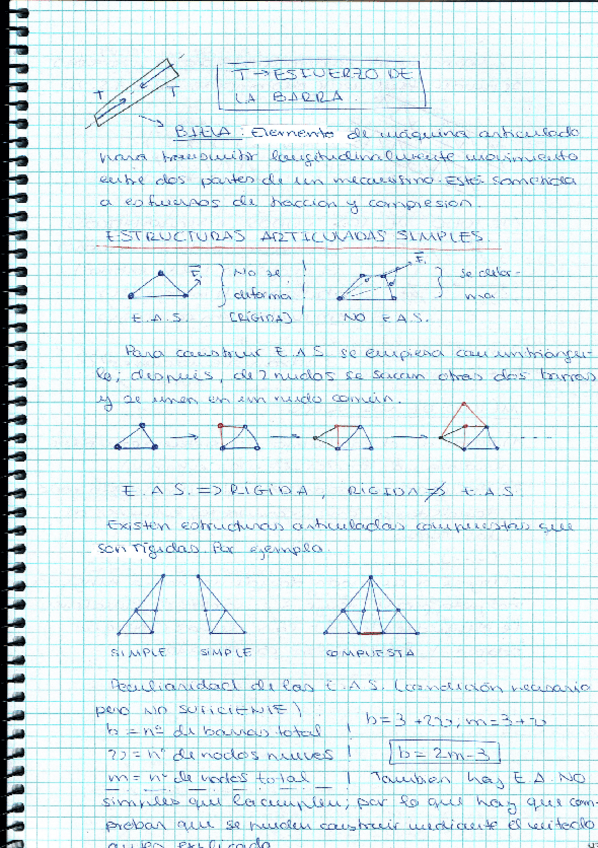 T → ESFUERZO DE
LA BARRA
T T
BIELA: Elemento de máquina articulado
para transmitir longitudinalmente movimiento
entre dos partes de un mecanismo. Está sometida
a esfuerzos de tracción y compresión.
ESTRUCTURAS ARTICULADAS SIMPLES.
F. } NO SE F. } se defor-
deforma ma
E.A.S. [RÍGIDA] NO E.A.S.
Para construir E.A.S. se empieza con un triángu-
lo; después, de 2 nudos se sacan otras dos barras
y se unen en un nudo común.
E.A.S. => RÍGIDA, RIGIDA ≠> E.A.S.
Existen estructuras articuladas compuestas que
son rígidas. Por ejemplo.
SIMPLE SIMPLE COMPUESTA
Peculiaridad de las E.A.S. (condición necesaria
pero NO SUFICIENTE):
b = nº de barras total b=3+2ν, m=3+ν
ν = nº de nodos nuevos b = 2m-3
m = nº de nodos total También hay E.A. NO
simples que la cumplen; por lo que hay que com-
probar que se pueden construir mediante el método
explicado